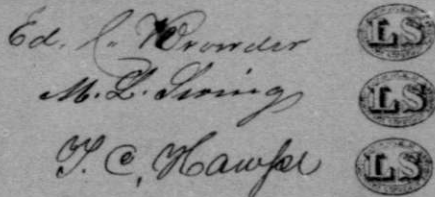 Ed. C. Krowder LS
M. L. Living LS
T. C. Hawfse LS